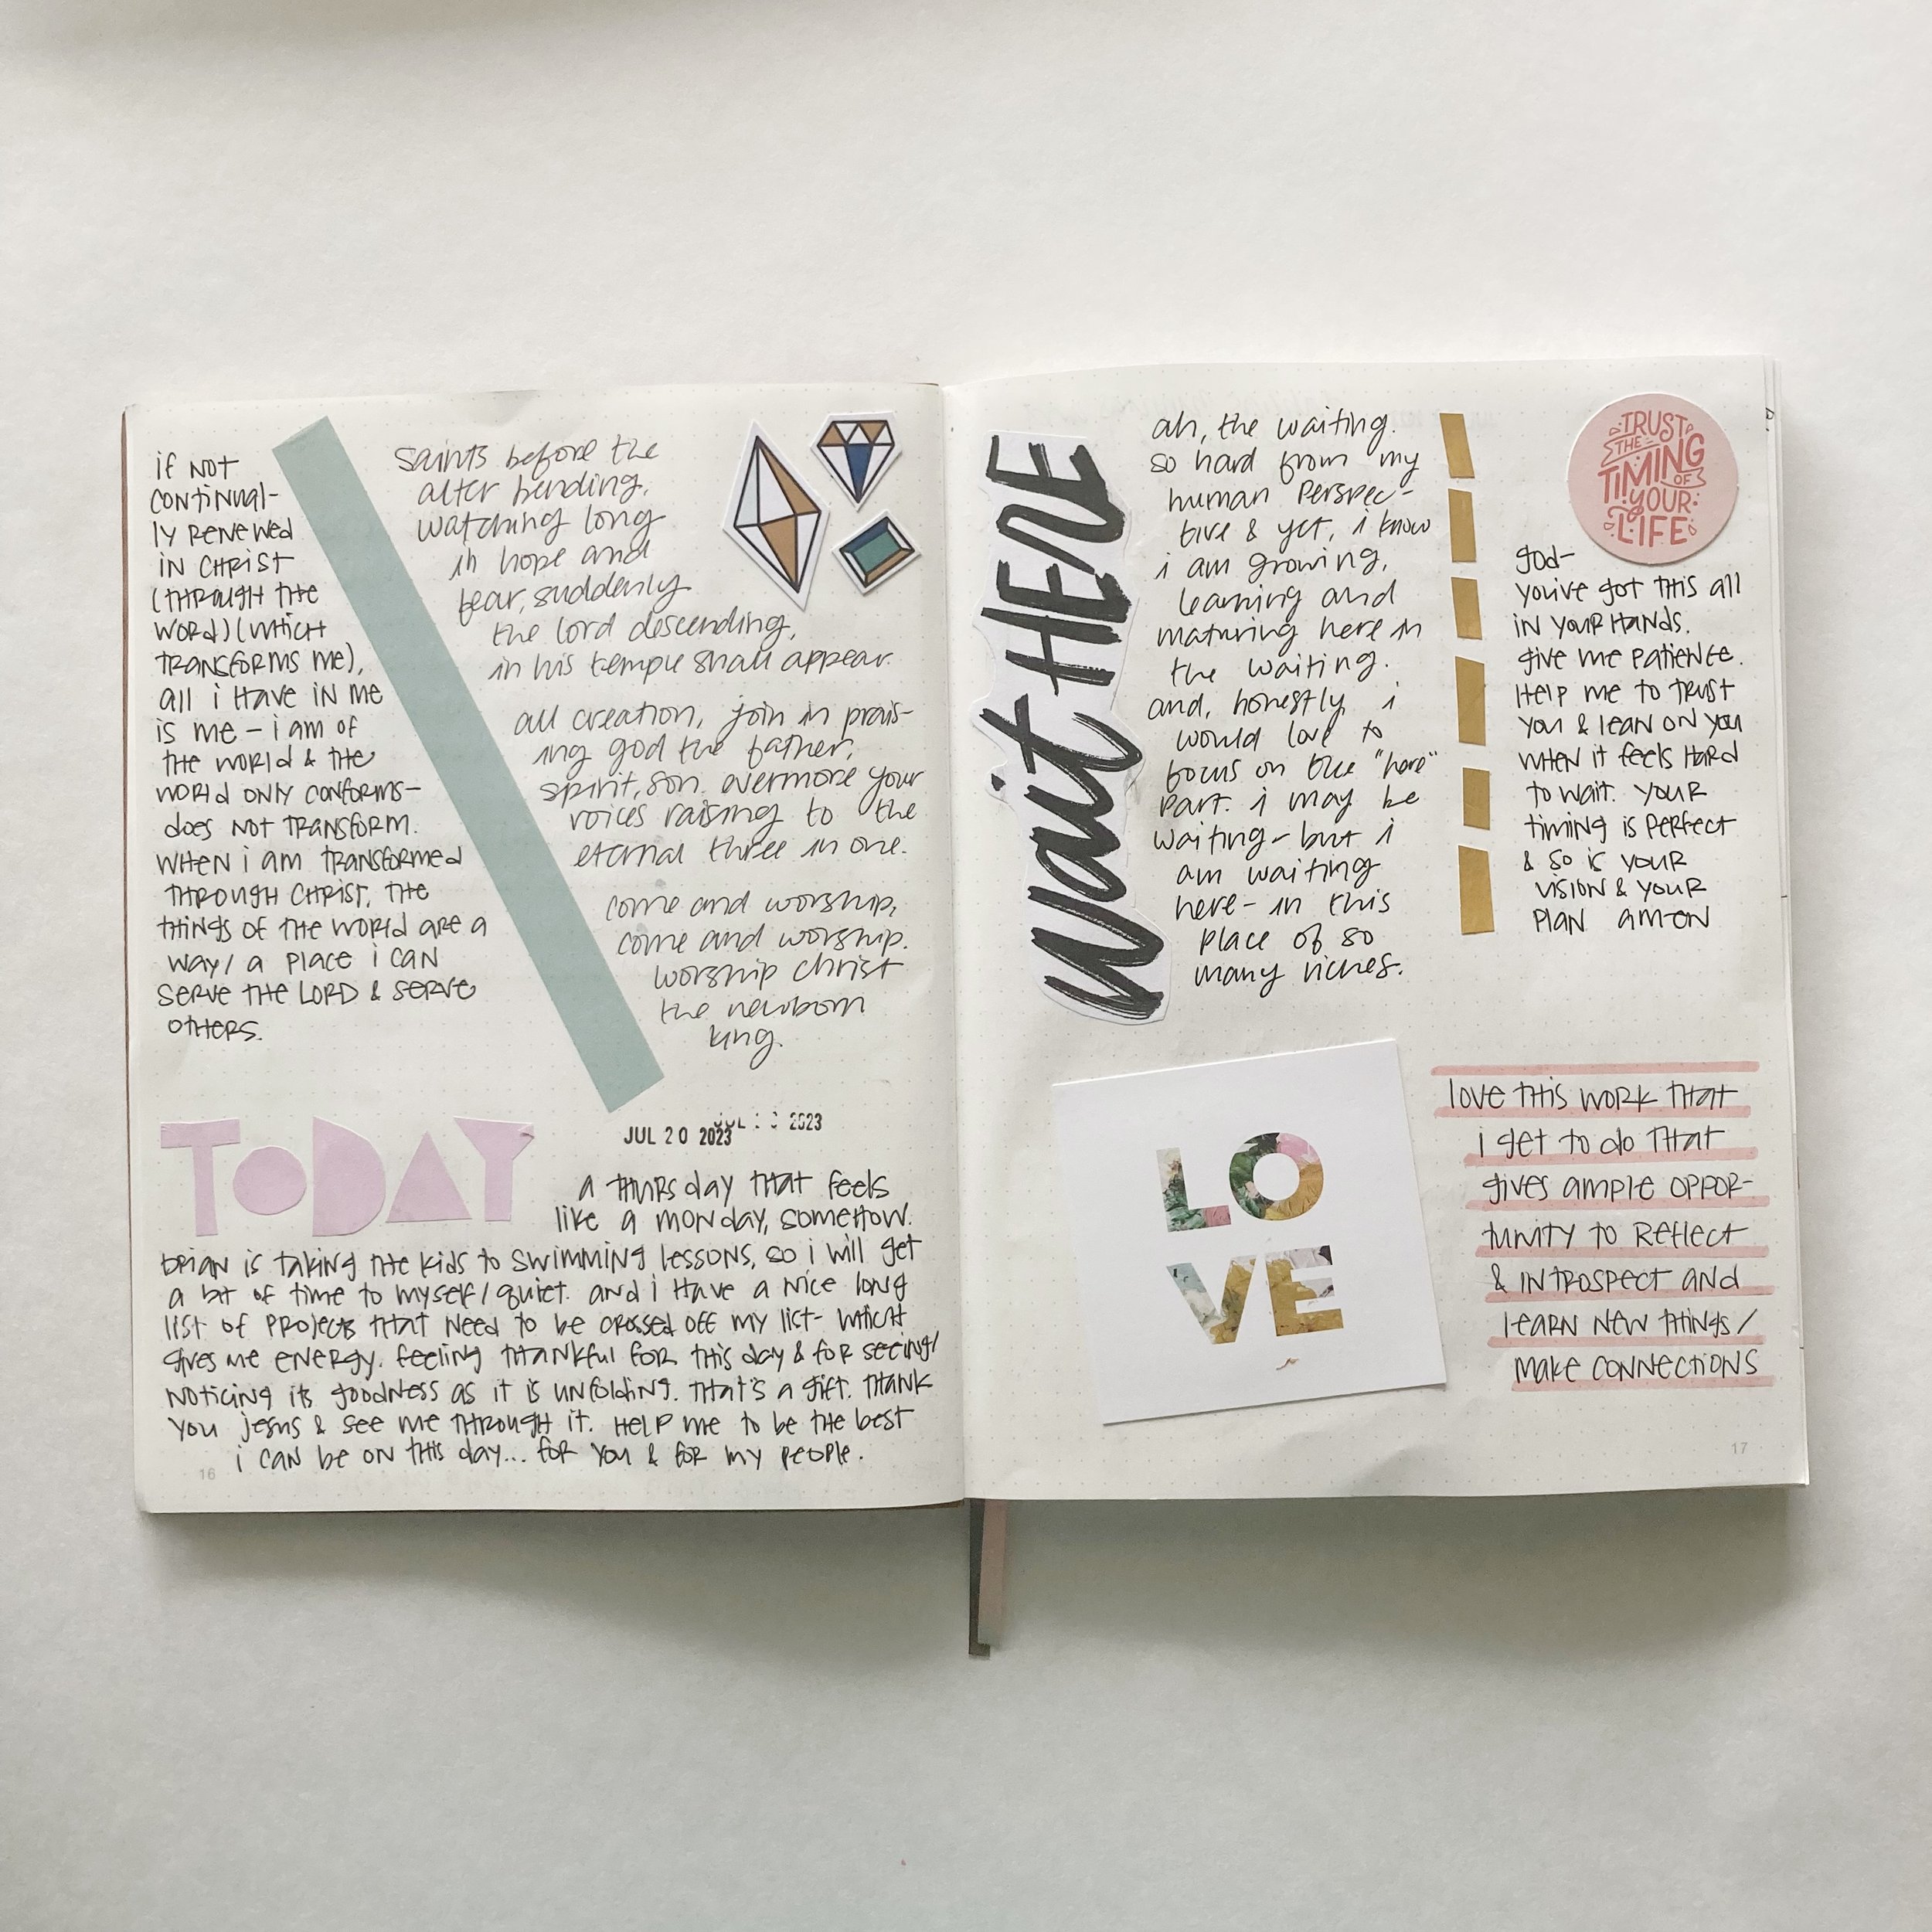 if not
continual-
ly renewed
in christ
(through the
word) (which
transforms me),
all i have in me
is me - i am of
the world & the
world only conforms-
does not transform.
when i am transformed
through christ, the
things of the world are a
way/ a place i can
serve the lord & serve
others.
saints before the
alter bending,
watching long
in hope and
fear, suddenly
the lord descending,
in his temple shall appear.
all creation, join in prais-
ing god the father,
spirit, son. evermore your
voices raising to the
eternal three in one.
come and worship,
come and worship.
worship christ
the newborn
king.
TODAY
JUL 20 2023
2023
a thursday that feels
like a monday, somehow.
brian is taking the kids to swimming lessons, so i will get
a bit of time to myself/quiet. and i have a nice long
list of projects that need to be crossed off my list- which
gives me energy. feeling thankful for this day & for seeing/
noticing its goodness as it is unfolding. that's a gift. thank
you jesus & see me through it. help me to be the best
i can be on this day... for you & for my people.
16
wait HERE
ah, the waiting.
so hard from my
human perspec-
tive & yet, i know
i am growing,
learning and
maturing here in
the waiting.
and, honestly, i
would love to
focus on the "here"
part. i may be
waiting- but i
am waiting
here- in this
place of so
many riches.
TRUST
THE
TIMING
OF
YOUR
LIFE
god-
youive got this all
in your hands.
give me patience.
help me to trust
you & lean on you
when it feels hard
to wait. your
timing is perfect
& so is your
vision & your
plan amen
LO
VE
love this work that
i get to do that
gives ample oppor-
tunity to reflect
& introspect and
learn new things/
make connections
17